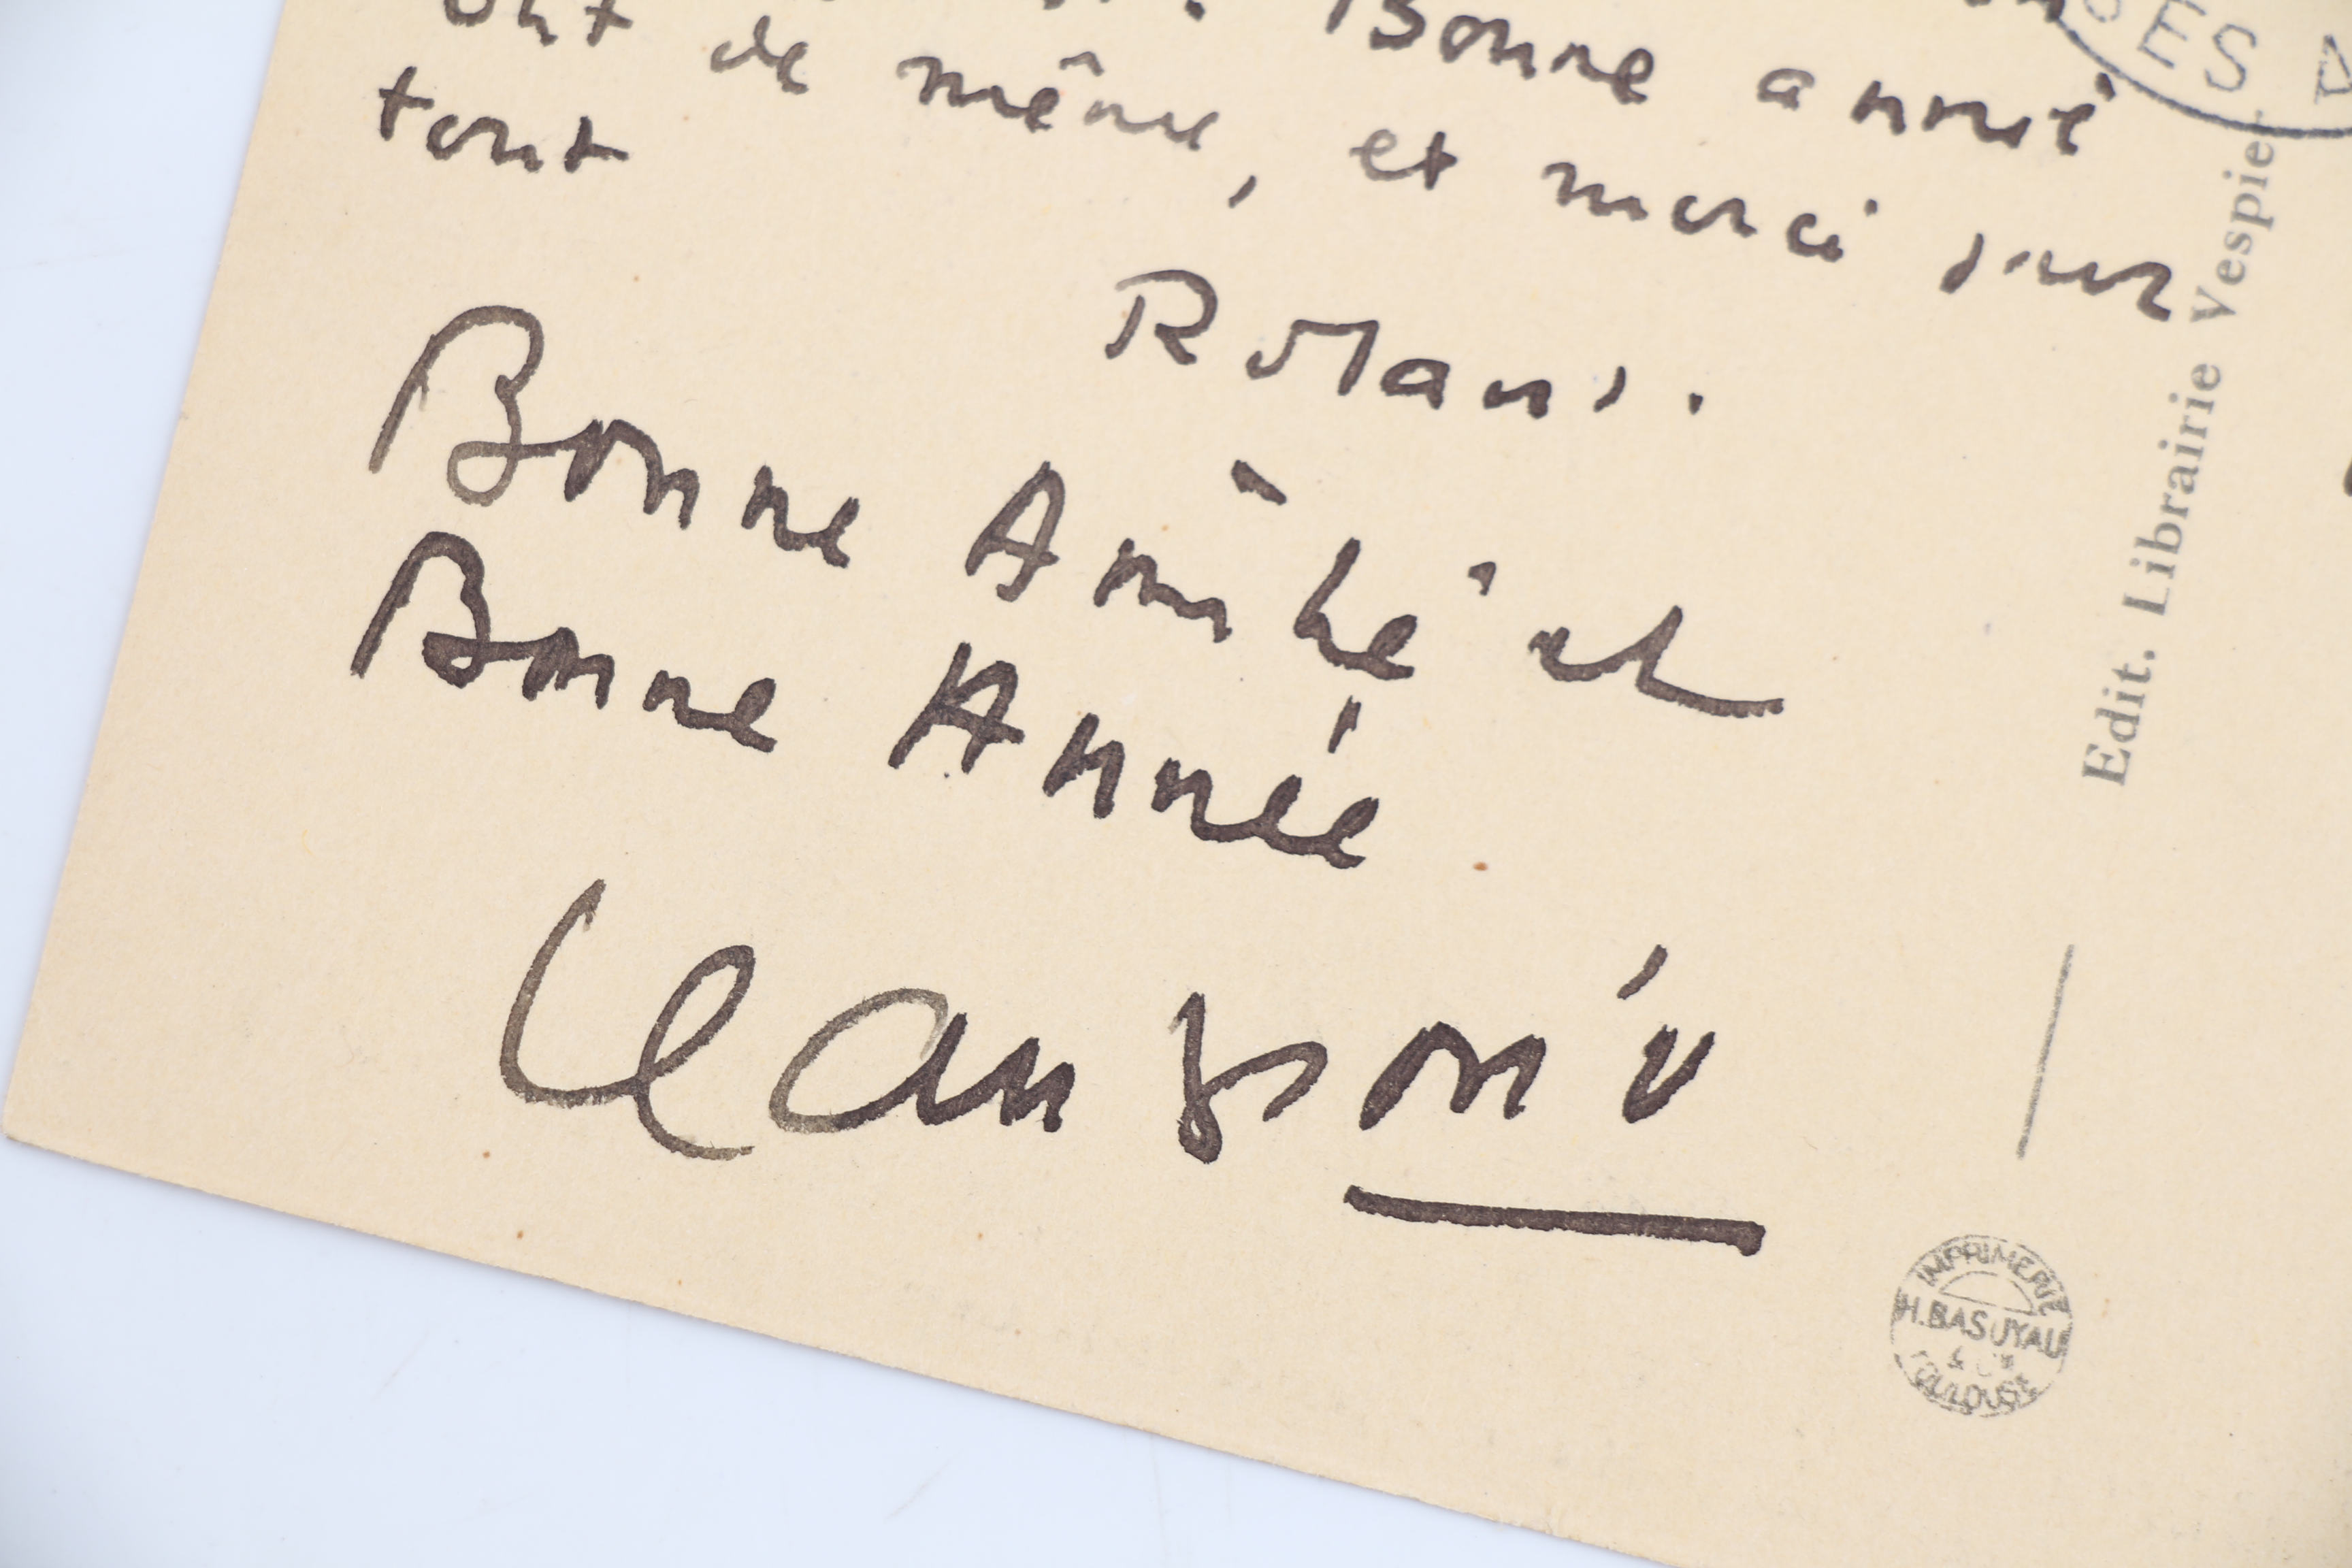 Bonne année
tout de même, et merci pour
tout
Roland.
Bonne Amitié et
Bonne Année
Edit. Librairie Vespie
IMPRIMERIE
H. BASUYAU
TOULOUSE